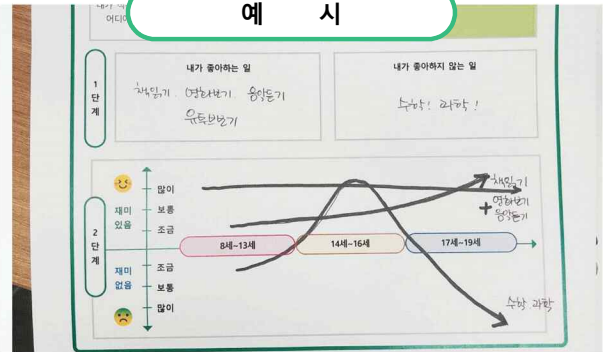 예 시
어디에
1단계
내가 좋아하는 일
책읽기 영화보기 음악듣기
유튜브보기
내가 좋아하지 않는 일
수학! 과학!
2단계
재미 있음
많이
보통
조금
재미 없음
조금
보통
많이
8세~13세
14세~16세
17세~19세
책읽기
+ 영화보기
음악듣기
수학 과학